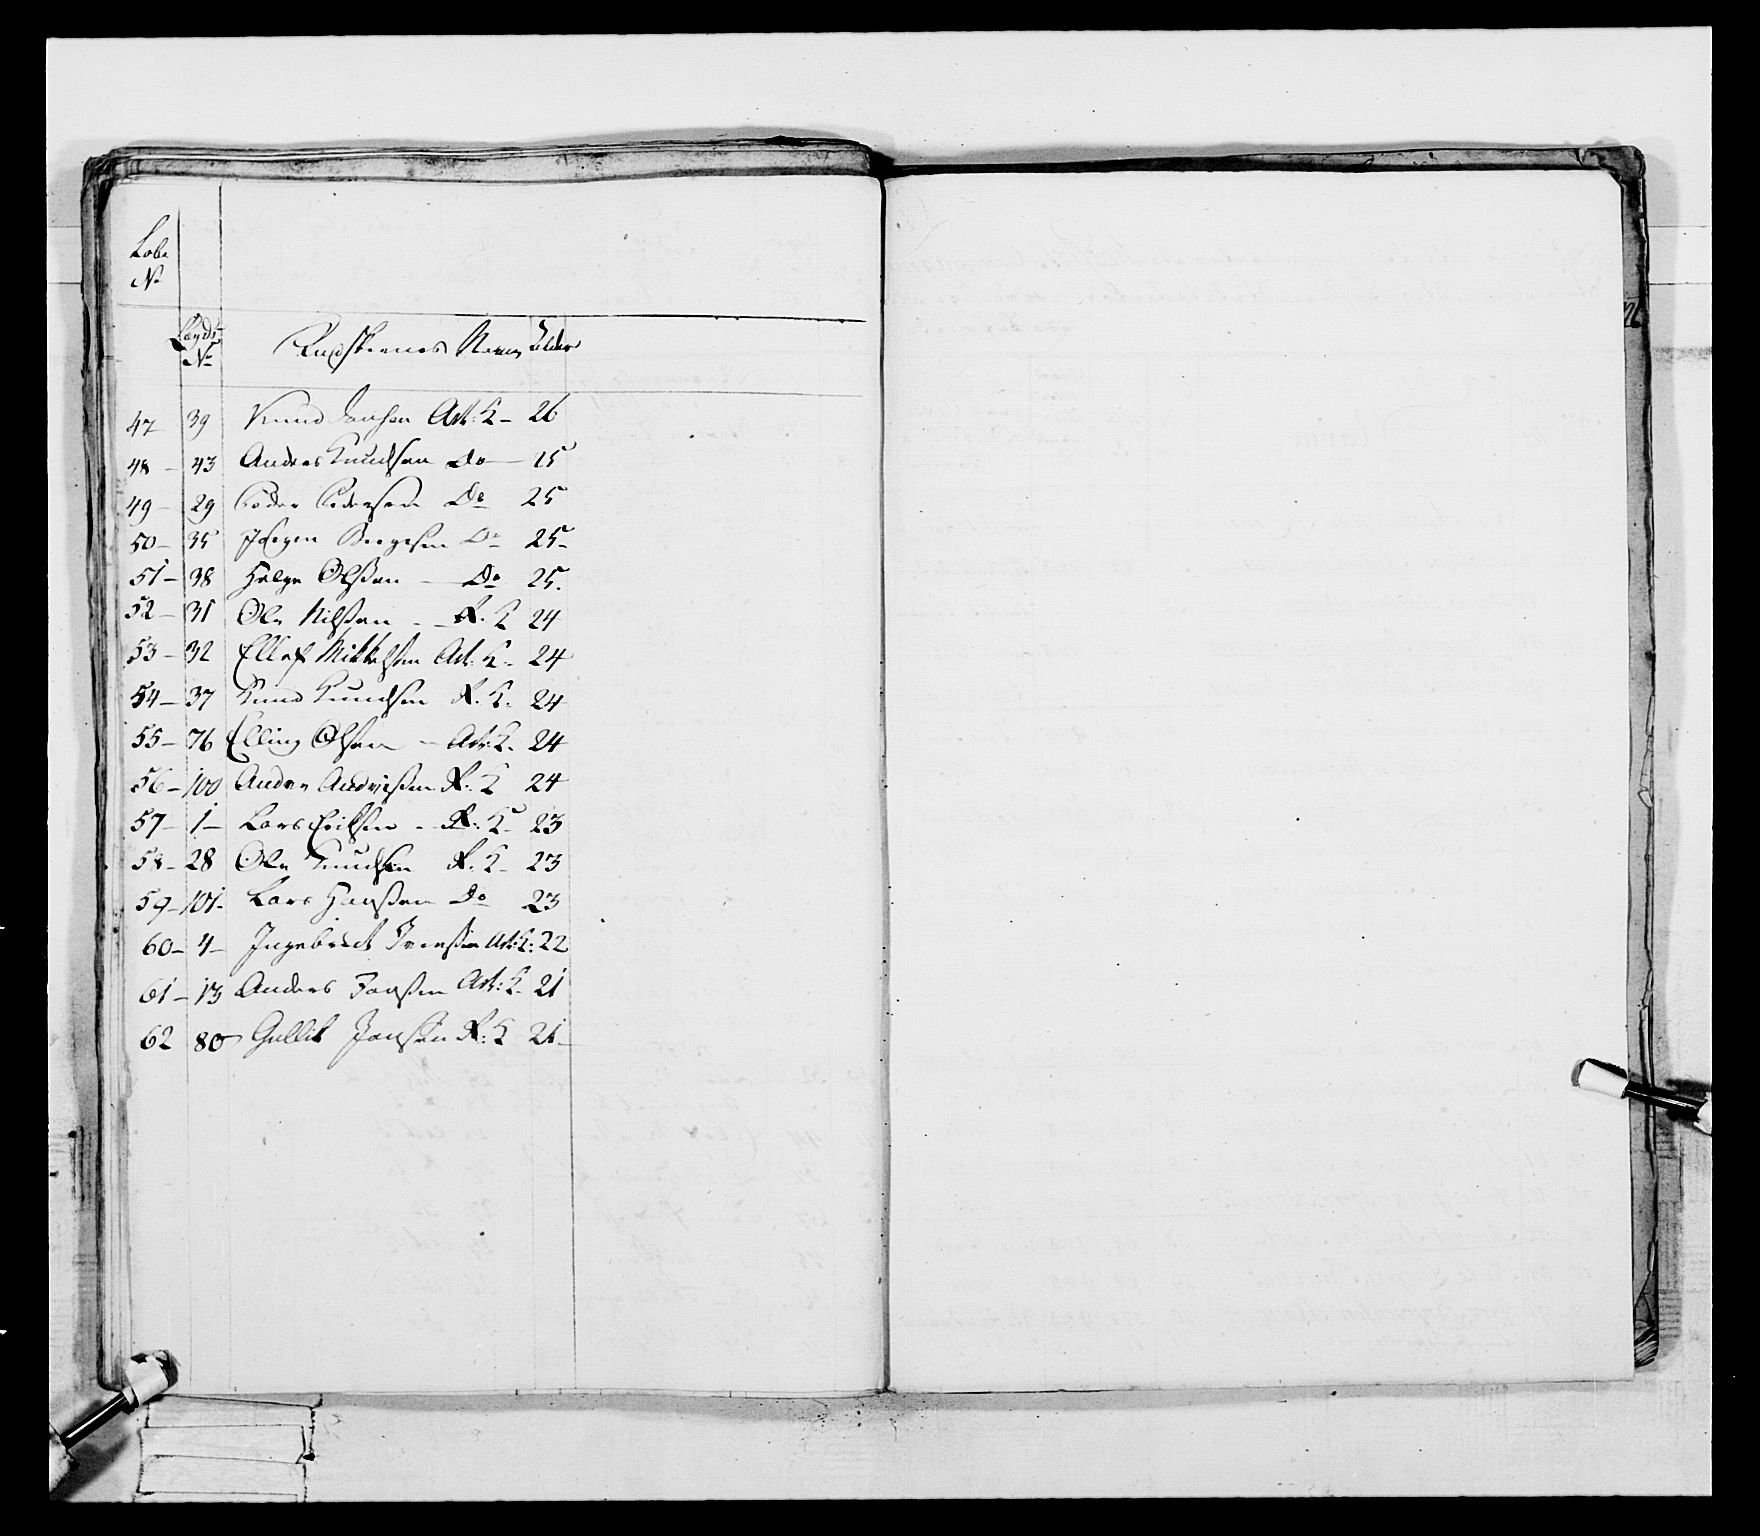 Løbe
No
Lægds
No
Navn Alder
47 39 Knud Jensen Art: K- 26
48 - 43 Anders Knudsen Do - 25
49 - 29 Peder Pedersen Do 25
50 - 35 Jørgen Do 25-
51 - 38 Helge Olssen - Do 25.
52 - 31 Ole Nilssen - - R. K 24
53 - 32 Ellef Mikkelsen Art: K- 24
54 - 37 Knud Knudsen R. K. 24
55 - 76 Elling Olsen - Art: K- 24
56 - 100 Andrissen R. K 24
57 - 1 - Lars Eriksen - R: K- 23
58 - 28 Ole Knudsen R. K- 23
59 - 101- Lars Hanssen Do 23
60 - 4 - Ingebrict Iverssen Art: K: 22
61 - 13 Anders Art: K- 21
62 80 Gullik Jonsen R: K 21-
26